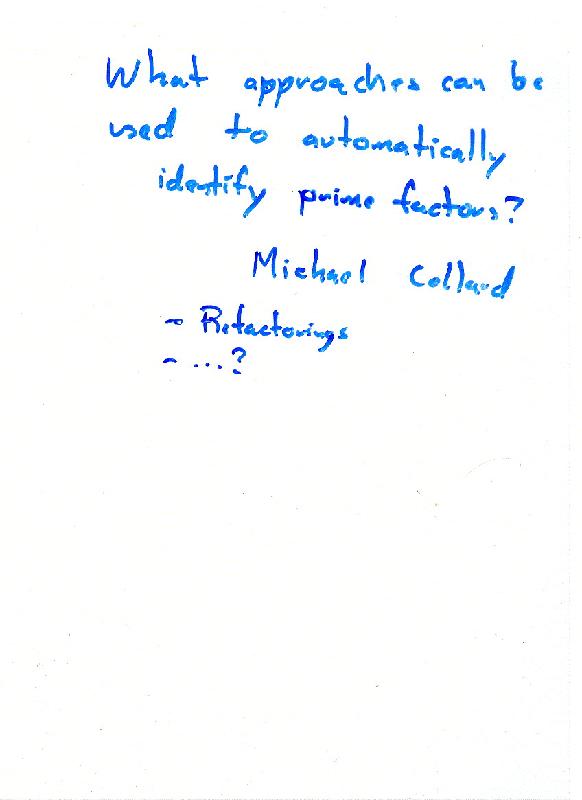 What approaches can be
used to automatically
identify prime factors?
Michael Collard
- Refactorings
- ...?